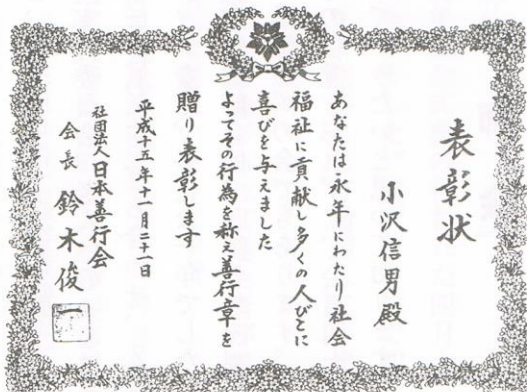 表彰状
小沢信男殿
あなたは永年にわたり社会
福祉に貢献し多くの人びとに
喜びを与えました
よってその行為を称え善行章を
贈り表彰します
平成十五年十一月二十一日
社団法人日本善行会
会長 鈴木俊一